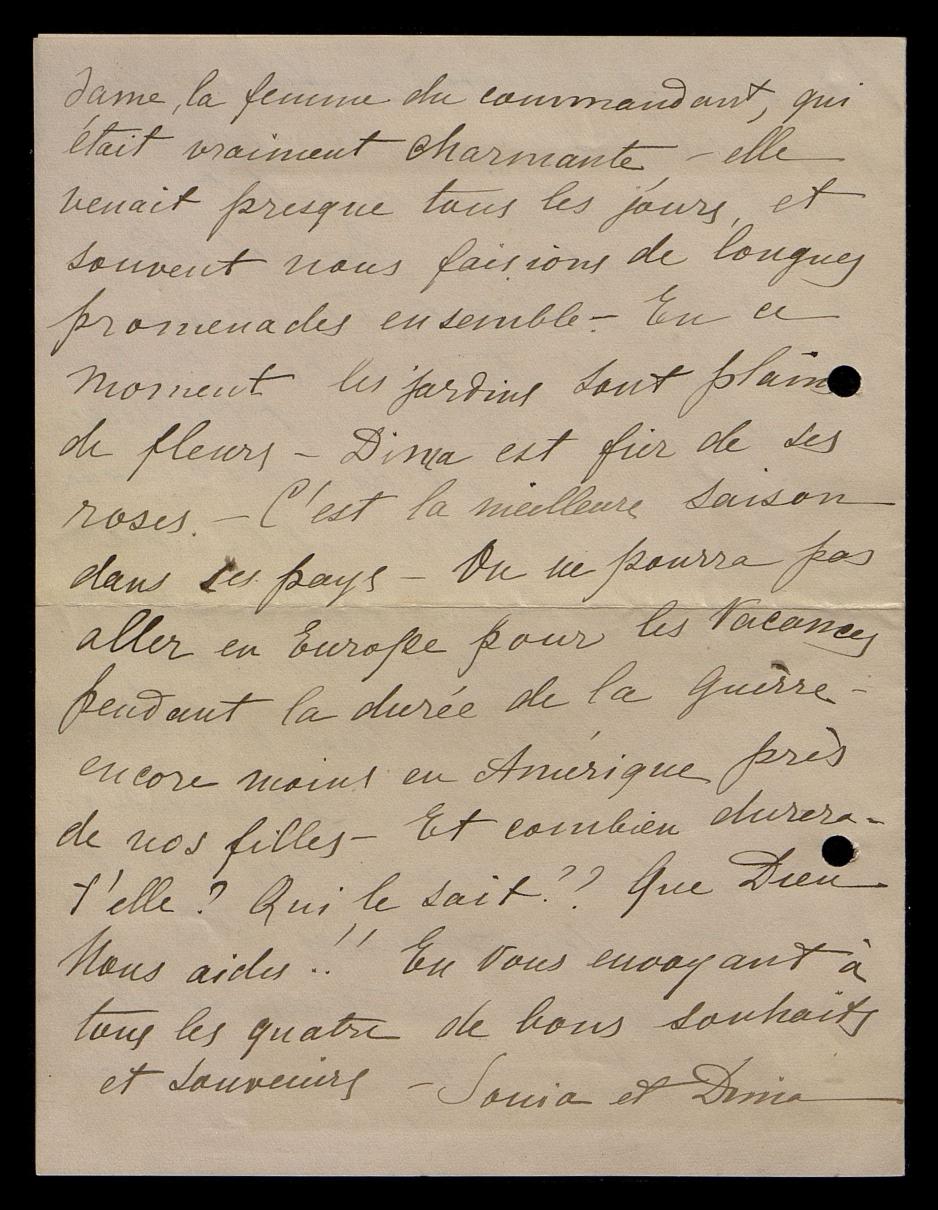 dame, la femme du commandant, qui
était vraiment charmante – elle
venait presque tous les jours, et
souvent nous faisions de longues
promenades ensemble – En ce
moment les jardins sont plains
de fleurs – Dima est fier de ses
roses. – C'est la meilleure saison
dans ces pays – On ne pourra pas
aller en Europe pour les vacances
pendant la durée de la guerre –
encore moins en Amérique près
de nos filles – Et combien durera-
t'elle? Qui le sait?? Que Dieu
nous aides!! En vous envoyant à
tous les quatre de bons souhaits
et souvenirs – Sonia et Dima